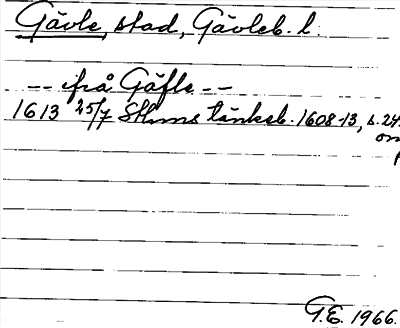 Gävle, stad, Gävleb. l.
-- ifrå Gäfle --
1613 25/7 Sthms tänkeb. 1608-13, s. 24
om
G.E. 1966.